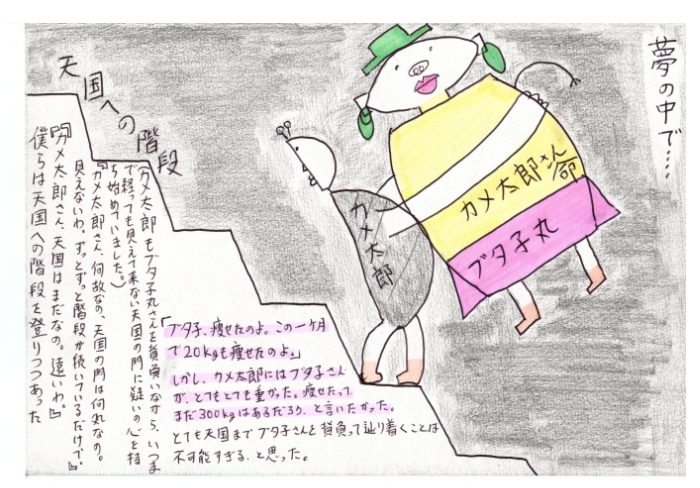 夢の中で……
カメ太郎さん命
ブタ子丸
カメ太郎
天国への階段
「ブタ子、痩せたのよ。この一ケ月
で20kgも痩せたのよ。」
しかし、カメ太郎にはブタ子さん
が、とてもとても重かった。痩せたって
まだ300kgはあるだろう、と言いたかった。
とても天国までブタ子さんを背負って辿り着くことは
不可能すぎる、と思った。
(カメ太郎もブタ子丸さんを背負いながら、いつま
で経っても見えて来ない天国の門に疑いの心を持
ち始めていました。)
『カメ太郎さん、何故なの。天国の門は何処なの。
見えないわ。ずっとずっと階段が続いているだけで。』
『カメ太郎さん、天国はまだなの。遠いわ。』
僕らは天国への階段を登りつつあった